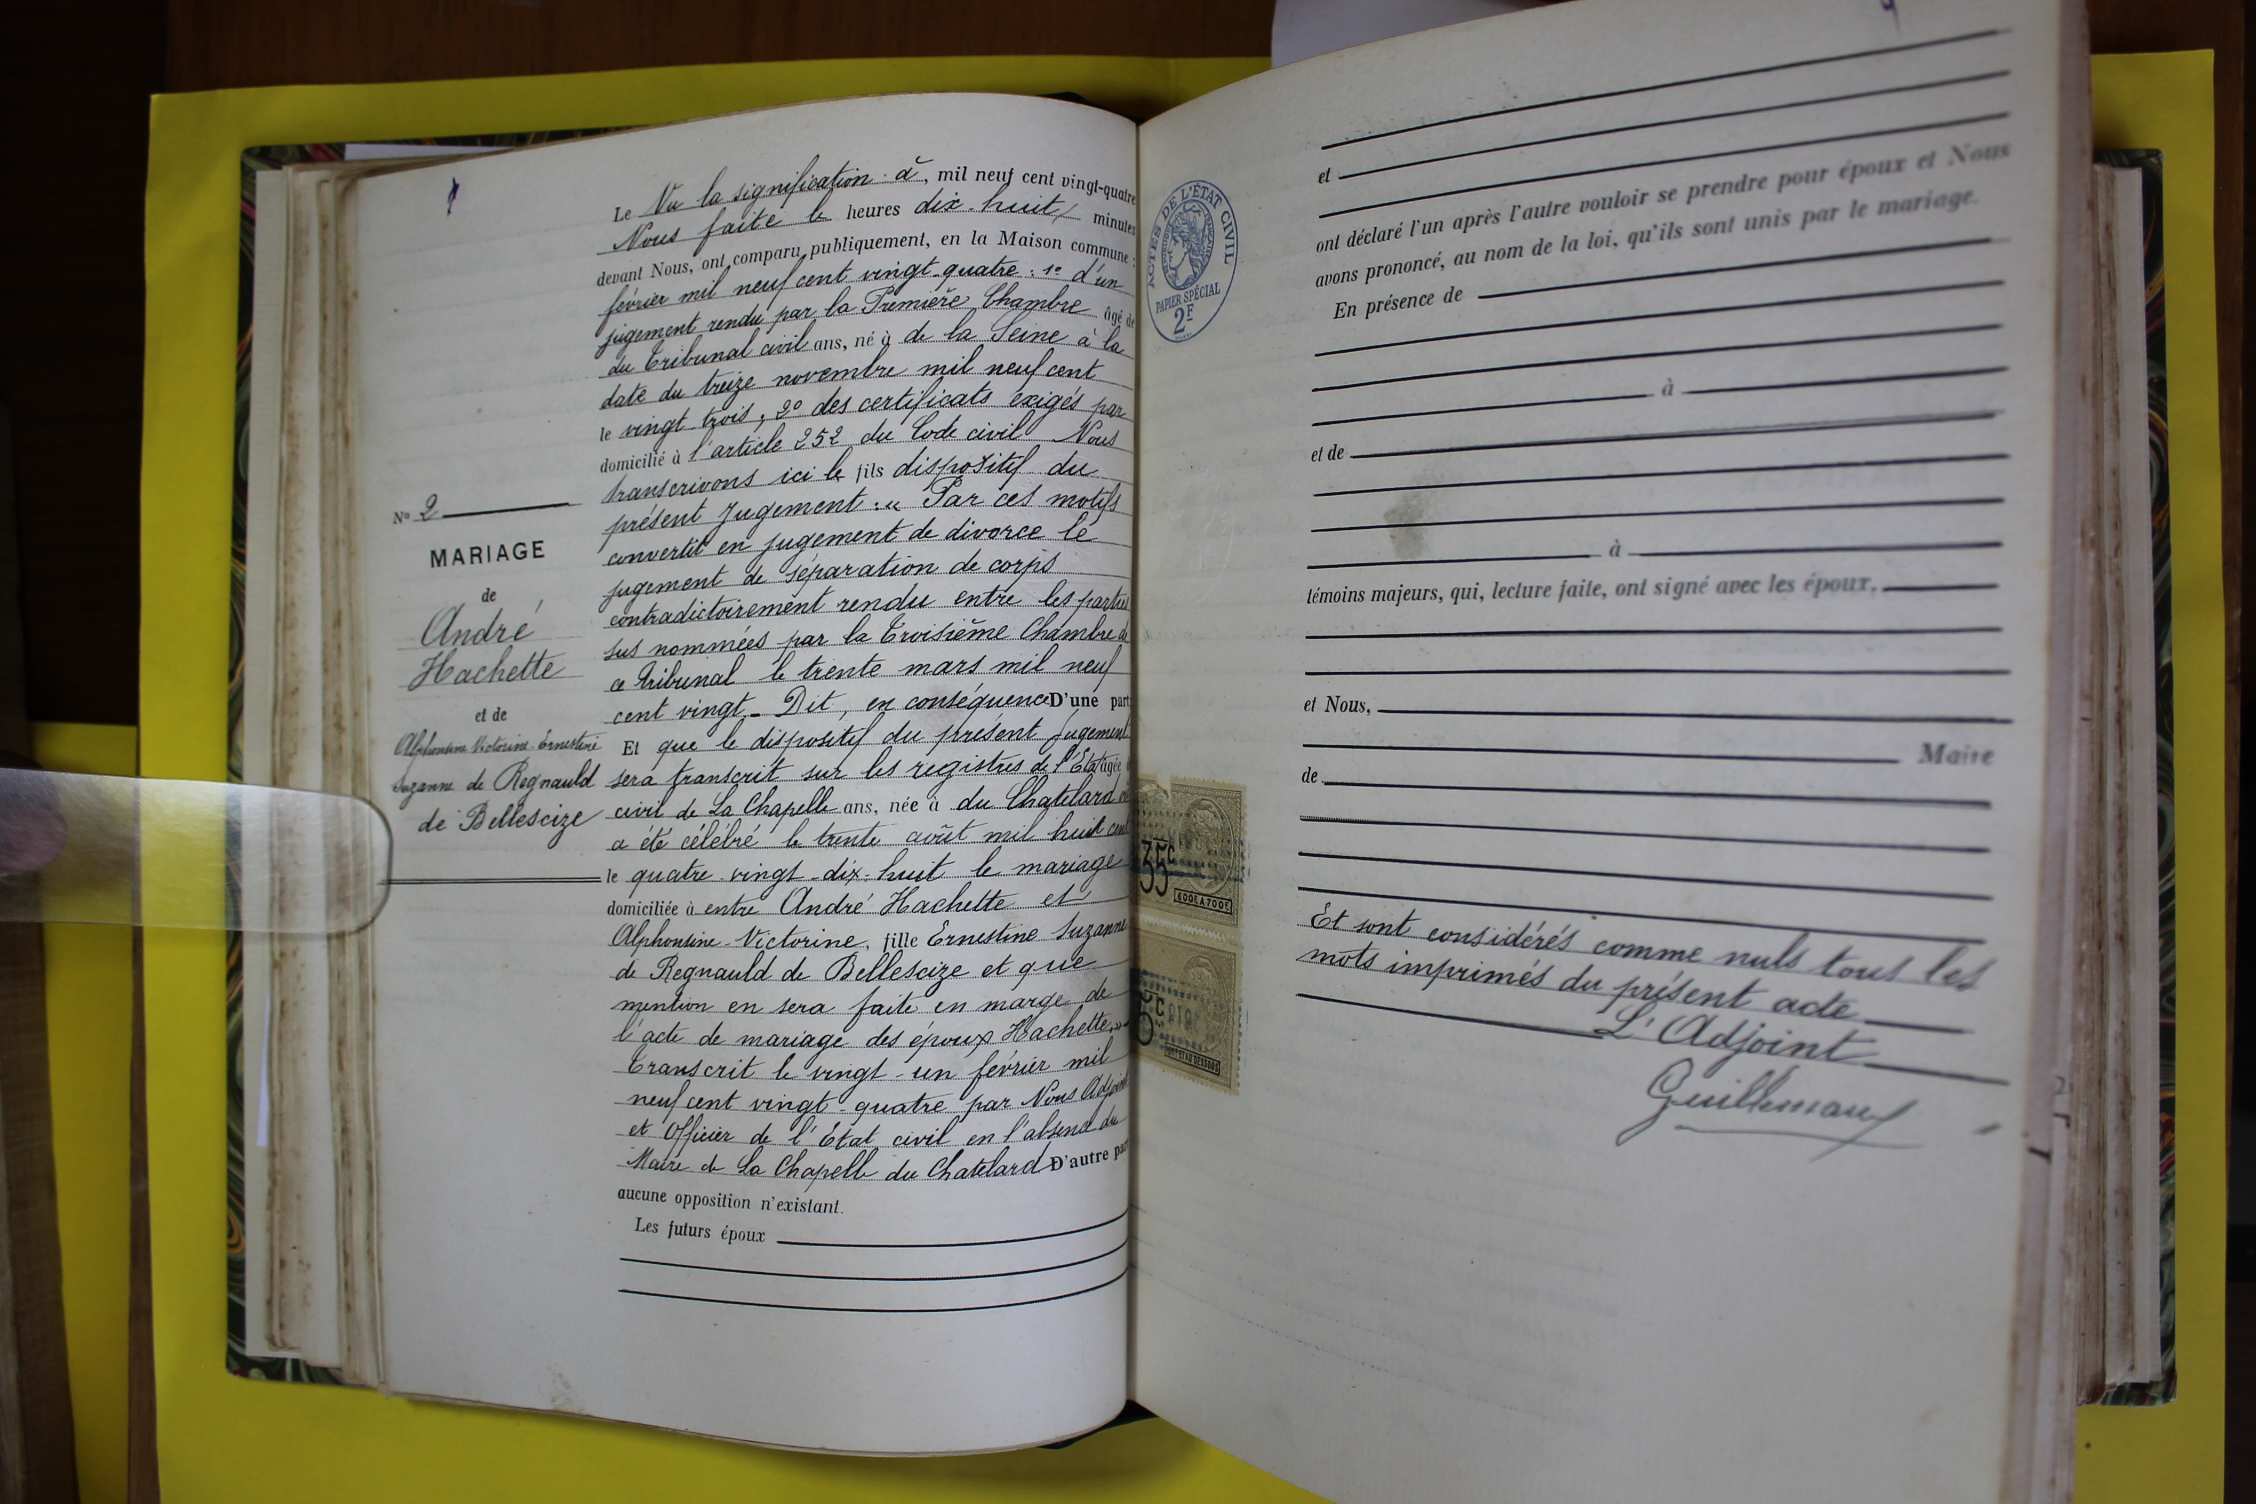 Le Vu la signification à, mil neuf cent vingt-quatre
Nous faite le heures dix-huit minutes
devant Nous, ont comparu publiquement, en la Maison commune :
février mil neuf cent vingt-quatre : 1º d'un
jugement rendu par la Première Chambre âgé de
du Tribunal civil ans, né à de la Seine à la
date du treize novembre mil neuf cent
le vingt trois, 2º des certificats exigés par
domicilié à l'article 252 du Code civil Nous
transcrivons ici le fils dispositif du
présent Jugement : « Par ces motifs
convertit en jugement de divorce le
jugement de séparation de corps
contradictoirement rendu entre les parties
sus nommées par la Troisième Chambre de
ce Tribunal le trente mars mil neuf
cent vingt - Dit, en conséquence D'une part
Et que le dispositif du présent Jugement
sera transcrit sur les registres de l'Etat âgée
civil de La Chapelle ans, née à du Chatelard où
a été célébré le trente août mil huit cent
le quatre-vingt-dix-huit le mariage
domiciliée à entre André Hachette et
Alphonsine-Victorine, fille Ernestine Suzanne
de Regnauld de Bellescize et que
mention en sera faite en marge de
l'acte de mariage des époux Hachette »
Transcrit le vingt-un février mil
neuf cent vingt-quatre par Nous Adjoint
et Officier de l'Etat civil en l'absence du
Maire de La Chapelle du Chatelard D'autre part
aucune opposition n'existant.
Les futurs époux
Nº 2
MARIAGE
de
André
Hachette
et de
Alphonsine Victorine Ernestine
Suzanne de Regnauld
de Bellescize
ACTES DE L'ÉTAT CIVIL
PAPIER SPÉCIAL
2F
35c
600F A 700F
5c
et
ont déclaré l'un après l'autre vouloir se prendre pour époux et Nous
avons prononcé, au nom de la loi, qu'ils sont unis par le mariage.
En présence de
à
et de
à
témoins majeurs, qui, lecture faite, ont signé avec les époux,
et Nous,
Maire
de
Et sont considérés comme nuls tous les
mots imprimés du présent acte
L'Adjoint